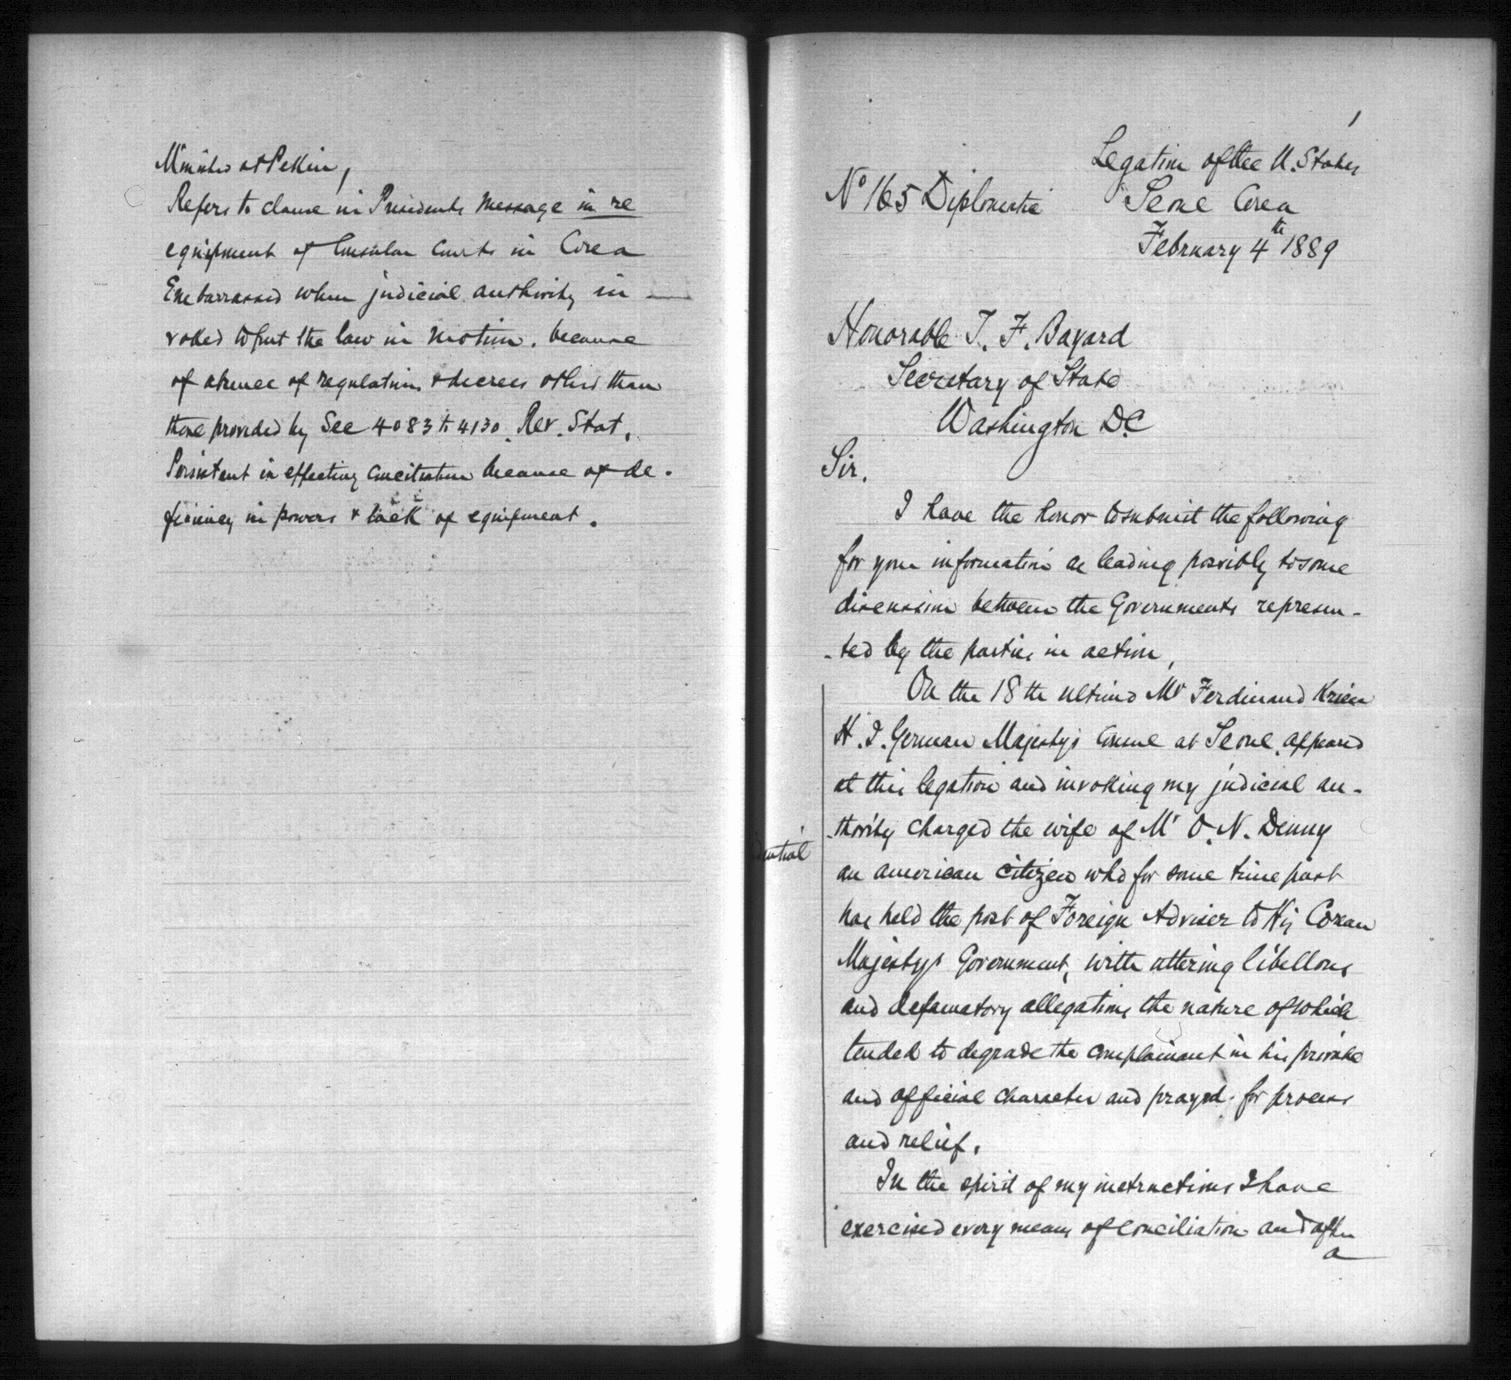 Minister at Pekin,
Refers to clause in Presidents message in re
equipment of Consular Courts in Corea
Embarrassed when judicial authority in
voked to put the law in motion. because
of absence of regulations & decrees other than
those provided by Sec 4083 to 4130. Rev. Stat.
Persistent in effecting conciliation because of de-
ficiency in powers & lack of equipment.
1
Legation of the U. States
No 165 Diplomatic Seoul Corea
February 4th 1889
Honorable T. F. Bayard
Secretary of State
Washington D.C
Sir.
I have the honor to submit the following
for your information as leading possibly to some
discussion between the Governments represen-
-ted by the parties in action,
On the 18th ultimo Mr Ferdinand Krien
H. I. German Majesty's Consul at Seoul, appeared
at this legation and invoking my judicial au-
-thority charged the wife of Mr O. N. Denny
dential
an american citizen who for some time past
has held the post of Foreign Adviser to His Corean
Majesty's Government, with uttering libellous
and defamatory allegations the nature of which
tended to degrade the complainant in his private
and official character and prayed for process
and relief.
In the spirit of my instructions I have
exercised every means of conciliation and after
a